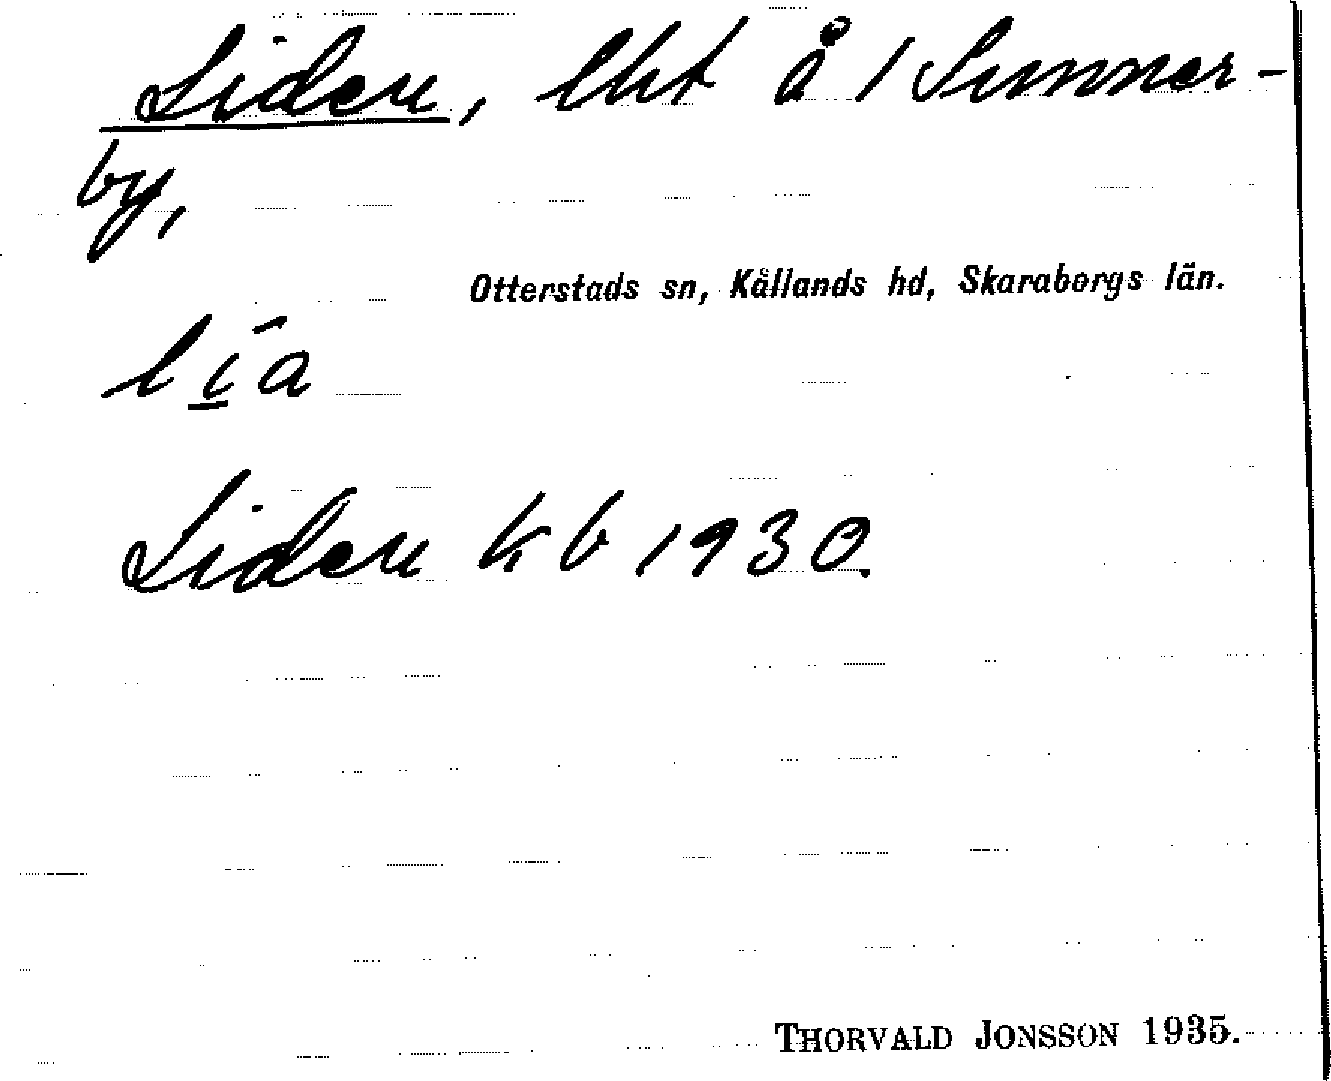 Liden, lht å 1 Sunner-
by,
Otterstads sn, Kållands hd, Skaraborgs län.
lia
Liden kb 1930.
THORVALD JONSSON 1935.